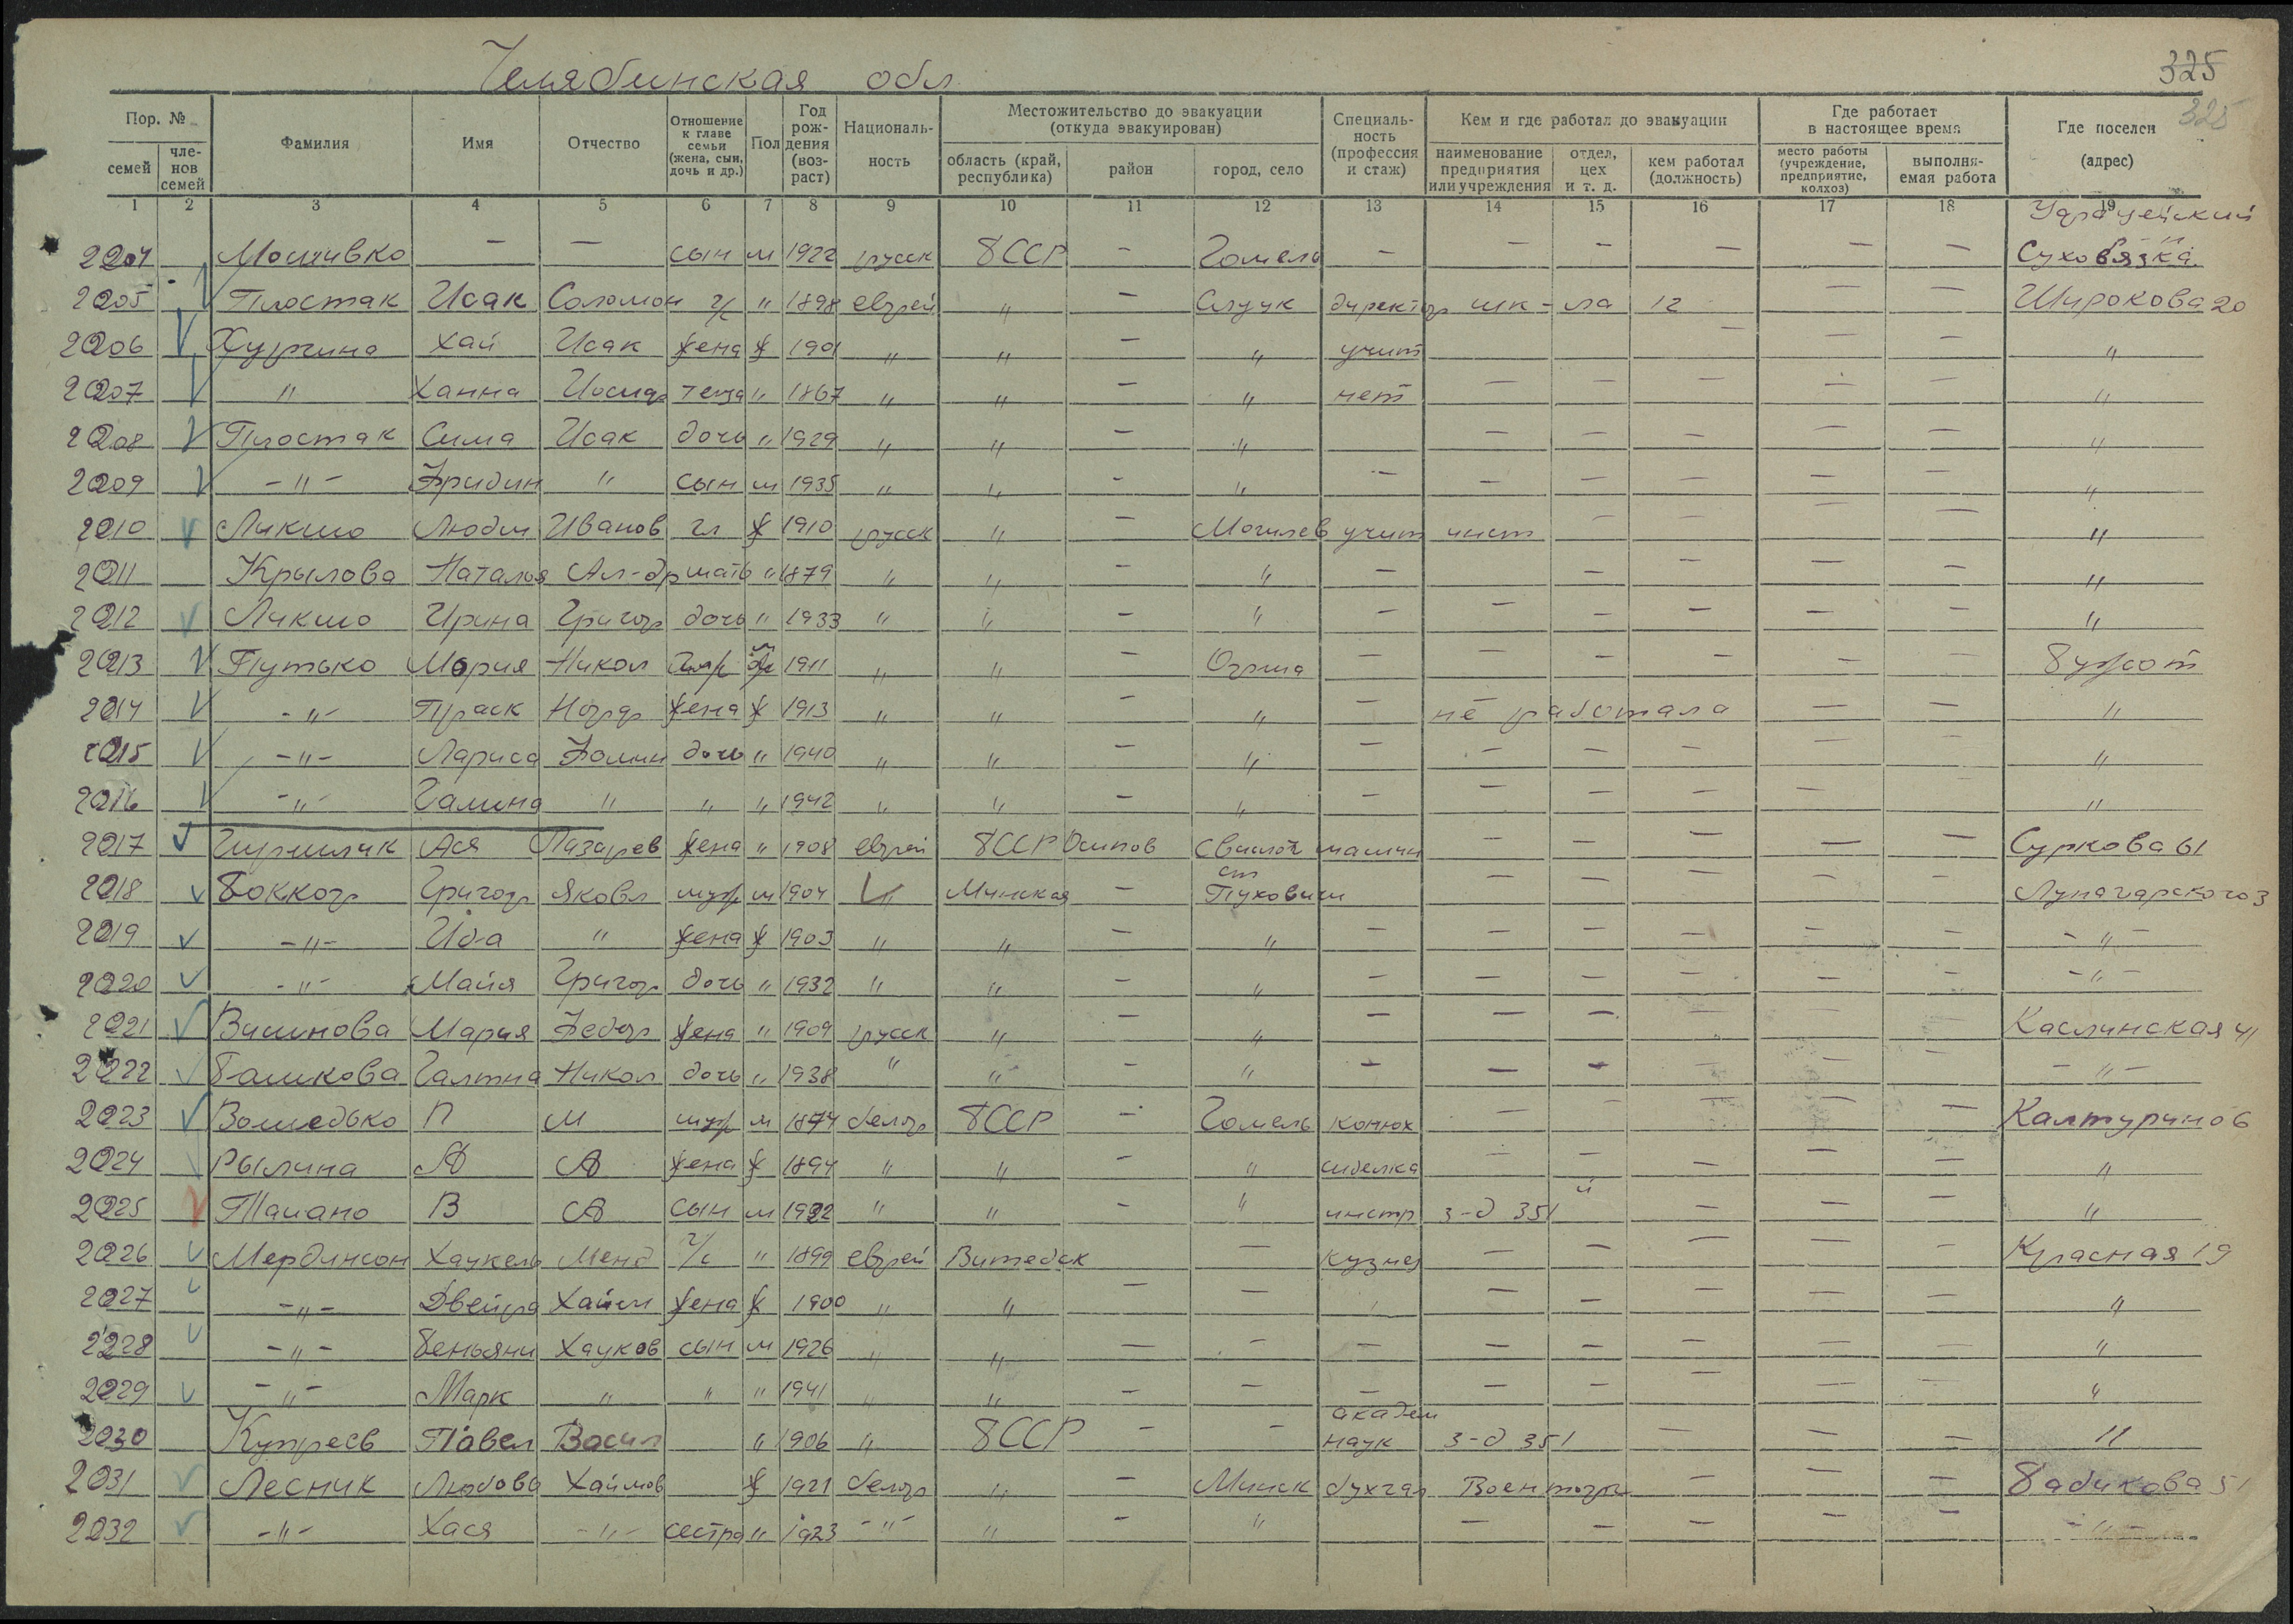 Челябинская обл
325
325
Пор. № Фамилия Имя Отчество Отношение к главе семьи (жена, сын, дочь и др.) Пол Год рождения (возраст) Национальность Местожительство до эвакуации (откуда эвакуирован) Специальность (профессия и стаж) Кем и где работал до эвакуации Где работает в настоящее время Где поселен (адрес)
семей членов семей область (край, республика) район город, село наименование предприятия или учреждения отдел, цех и т. д. кем работал (должность) место работы (учреждение, предприятие, колхоз) выполняемая работа
1 2 3 4 5 6 7 8 9 10 11 12 13 14 15 16 17 18 19
2204 — — сын м 1922 русск БССР — Гомель — — — — — — Суховязка
2205 Плостак Исак Соломон г/с " 1898 еврей " — Слуцк директор шк-ла 12 — — Широкова 20
2206 Хургина Хай Исак жена ж 1901 " " — " учит — — — "
2207 " Ханна Иосиф теща " 1867 " " — " нет — — — — — "
2208 Плостак Сима Исак дочь " 1929 " " — " — — — — — "
2209 -"- Фридин " сын м 1935 " " — " — — — — — — "
2010 Ликшо Людм Иванов гл ж 1910 русск " — Могилев учит инст — — — — "
2011 Крылова Наталья Ал-др мать " 1879 " " — " — — — — — — "
2012 Ликшо Ирина Григор дочь " 1933 " " — " — — — — — — "
2013 Путько Мория Никол м 1911 " " — Орша — — — — — —
2014 -"- Праск жена ж 1913 " " — " — не работала — — "
2015 -"- Лариса Фомин дочь " 1940 " " — " — — — — — — "
2016 -"- Галина " " " 1942 " " — " — — — — — — "
2017 Ася Лазарев жена " 1908 еврей БССР Осипов Свислоч машин — — — — — Суркова 61
2018 Боккор Григор Яковл муж м 1904 " Минская — ст Пуховичи — — — — — Луначарского 3
2019 -"- Ида " жена ж 1903 " " — " — — — — — — -"-
2020 -"- Майя Григор дочь " 1932 " " — " — — — — — — -"-
2021 Вишнова Мария Федор жена " 1909 русск " — " — — — — — — Каслинская 41
2222 Башкова Галина Никол дочь " 1938 " " — " — — — — — — -"-
2023 Вошедько П М муж м 1874 белор БССР — Гомель конюх — — — — — Калтурино 6
2024 Рылина А А жена ж 1894 " " — " сиделка — — — — — "
2025 В А сын м 1922 " " — " инстр з-д 351 й — — — "
2026 Мердинсон Хацкель Менд г/с " 1899 еврей Витебск — кузнец — — — — — Красная 19
2027 -"- Двейра Хайм жена ж 1900 " " — — — — — — — "
2228 -"- Беньями Хацков сын м 1926 " " — — — — — — — — "
2029 -"- Марк " " " 1941 " " — — — — — — — — "
2030 Купреев Павел Васил " 1906 " БССР — — академ наук з-д 351 — — — "
2031 Лесник Любовь Хаимов ж 1921 белор " — Минск бухгал Военторг — — — Бабикова 51
2032 -"- Хася -"- сестра " 1923 -"- " — " — — — — — -"-